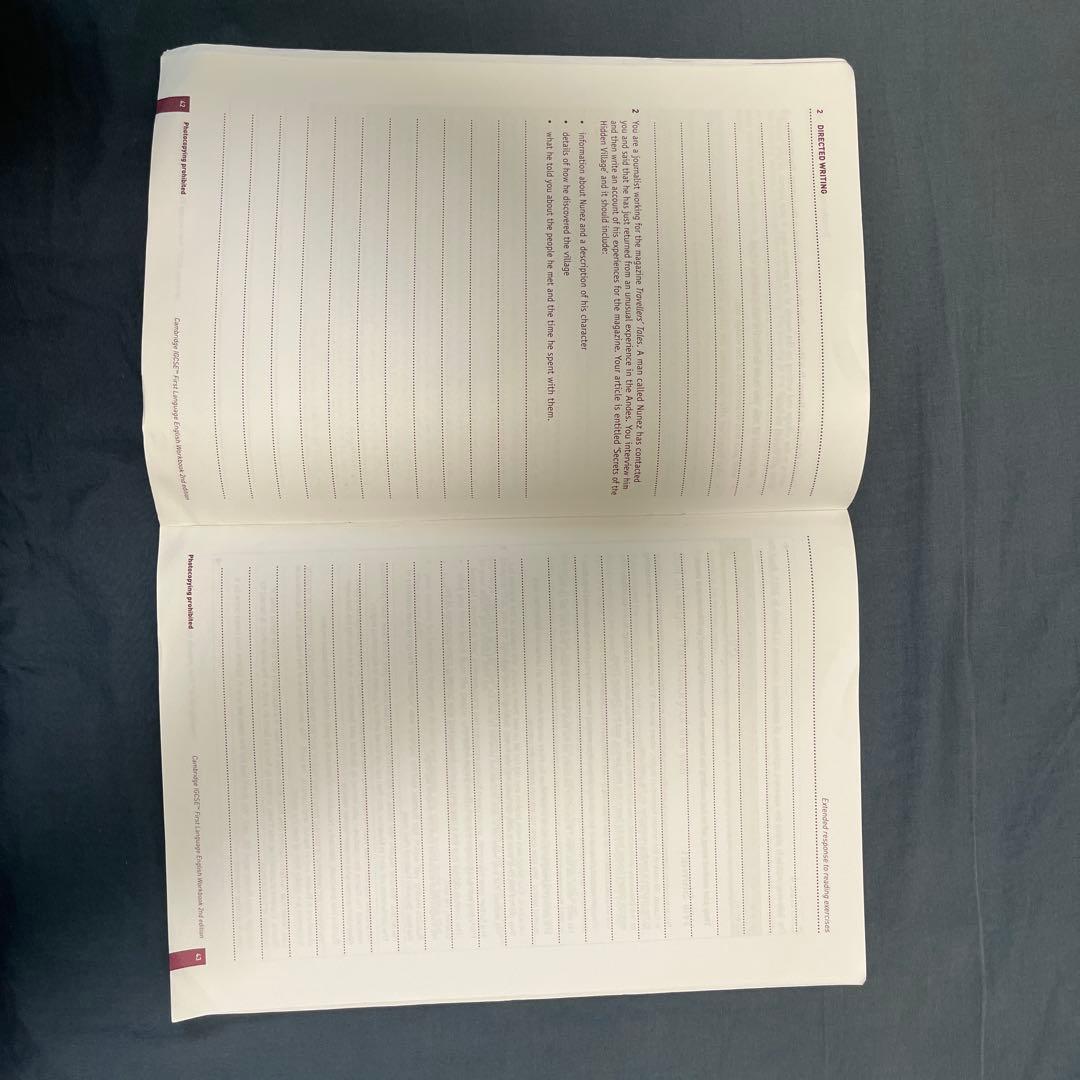 2 DIRECTED WRITING
2 You are a journalist working for the magazine Travellers' Tales. A man called Nunez has contacted
you and said that he has just returned from an unusual experience in the Andes. You interview him
and then write an account of his experiences for the magazine. Your article is entitled 'Secrets of the
Hidden Village' and it should include:
• information about Nunez and a description of his character
• details of how he discovered the village
• what he told you about the people he met and the time he spent with them.
42 Photocopying prohibited Cambridge IGCSE™ First Language English Workbook 2nd edition
Extended response to reading exercises
Photocopying prohibited Cambridge IGCSE™ First Language English Workbook 2nd edition 43